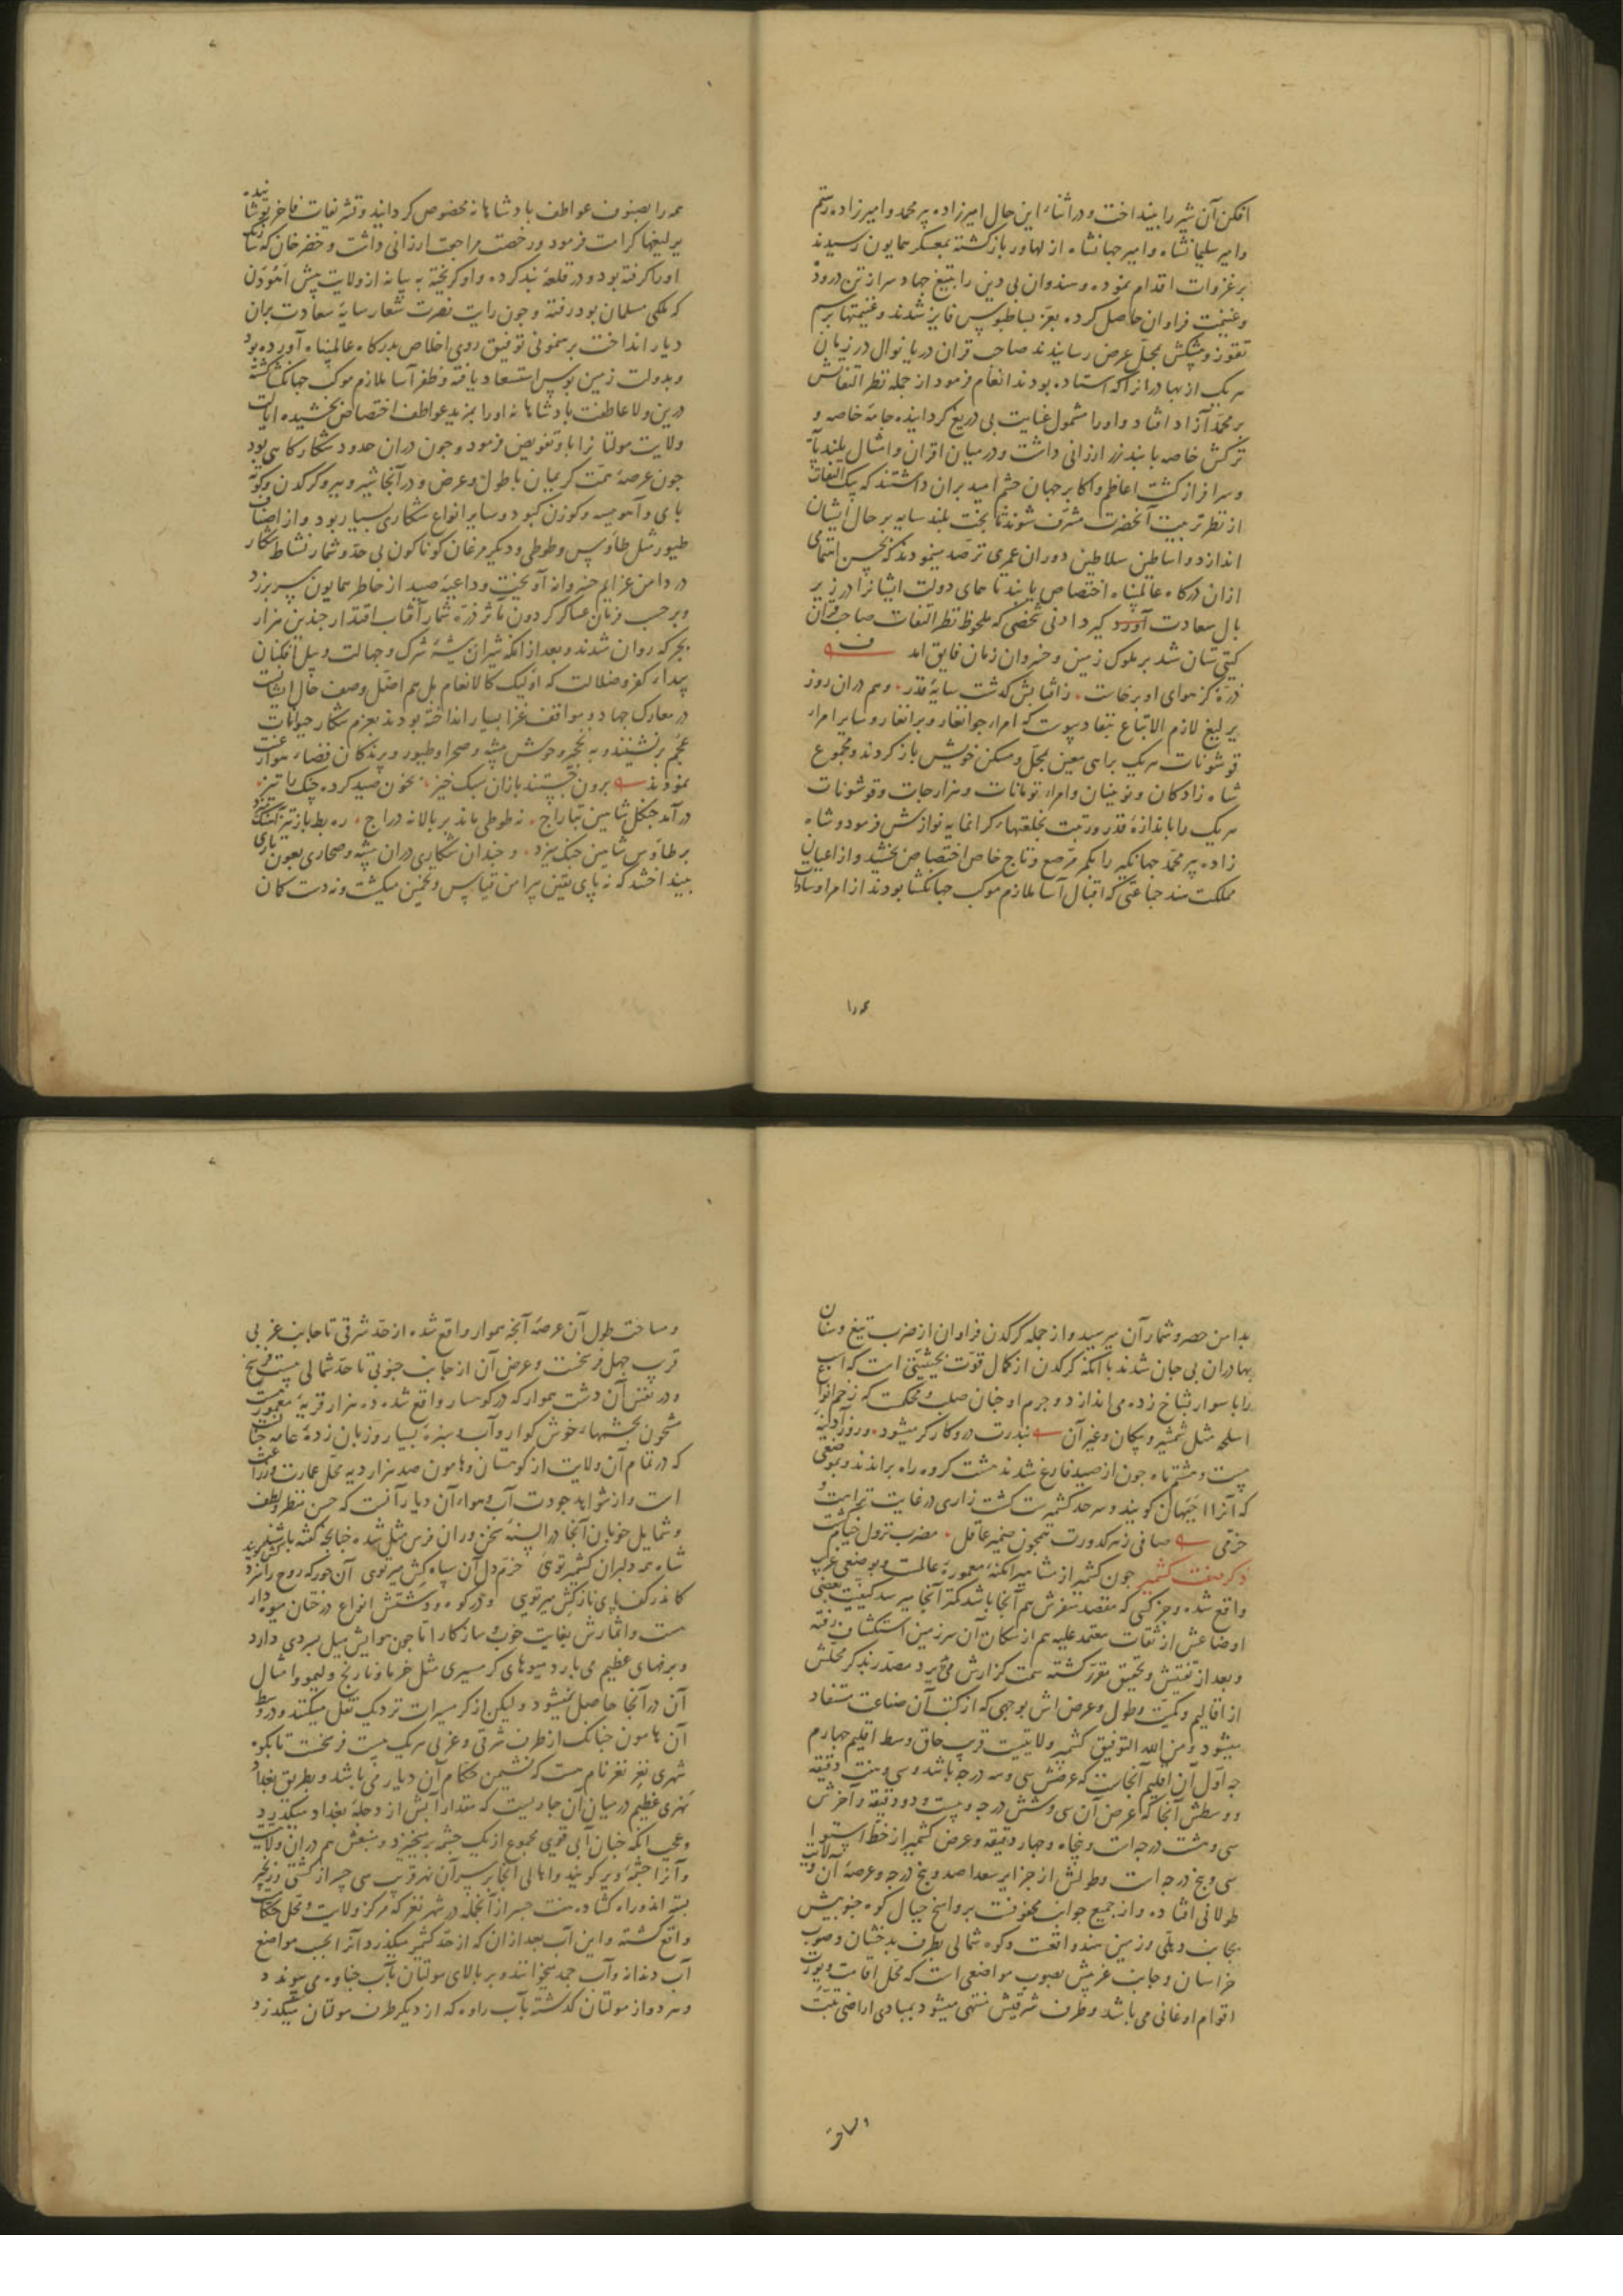 افکن آن شیر را بینداخت و در اثناء این حال امیرزاده پیر محمد و امیرزاده رستم
و امیر سلیمانشاه و امیر جهانشاه از لهاور بازکشته بمعسکر همایون رسیدند
بر غزوات اقدام نموده و هندوان بی دین را بتیغ جهاد سر از تن درود
و غنیمت فراوان حاصل کرده بعز بساط بوس فایز شدند و غنیمتها برسم
تقوز و پیشکش بمحل عرض رسانیدند صاحب قران دریا نوال در زمان
هر یک از بهادرانرا که استاده بودند انعام فرمود از جمله نظر التفاتش
بر محمد آزاد افتاد و او را مشمول عنایت بی دریغ کردانیده جامۀ خاصه و
ترکش خاصه با بند زر ارزانی داشت و در میان اقران و امثال بلند پایه
و سرافراز کشت اعاظم و اکابر جهان چشم امید بران داشتند که بیک التفات
از نظر تربیت آنحضرت مشرف شوند تا بخت بلند سایه بر حال ایشان
اندازد و اساطین سلاطین دوران عمری ترصد مینمودند که بحسن اهتمامی
ازان درکاه عالمپناه اختصاص یابند تا همای دولت ایشانرا در زیر
بال سعادت آورد کیرد ادنی شخصی که ملحوظ نظر التفات صاحب قران
کیتی ستان شد بر ملوک زمین و خسروان زمان فایق امد
ذرۀ کز هوای او برخاست زافتابش کذشت سایۀ قدر و هم دران روز
یرلیغ لازم الاتباع بنفاد پیوست که امراء جوانغار و برانغار و سایر امراء
قوشونات هر یک براهی معین بمحل و مسکن خویش باز کردند و مجموع
شاه زادکان و نوینیان و امراء تومانات و هزارجات و قوشونات
هر یک را باندازۀ قدر و رتبت بخلعتهاء کرانمایه نوازش فرمود و شاه
زاده پیر محمد جهانکیر را بکمر مرصع و تاج خاص اختصاص بخشید و از اعیان
مملکت هند جماعتی که اقبال آسا ملازم موکب جهانکشا بودند از امرا و سادات
همه را
همه را بصنوف عواطف پادشاهانه مخصوص کردانید و تشریفات فاخر پوشانیده
یرلیغها کرامت فرمود و رخصت مراجعت ارزانی داشت و خضر خان که سارنک
او را کرفته بود و در قلعۀ بند کرده و او کریخته به بیانه از ولایت پیش اهودن
که ملکی مسلمان بود رفته و چون رایت نصرت شعار سایۀ سعادت بران
دیار انداخت برهنمونی توفیق روی اخلاص بدرکاه عالمپناه آورده بود
و بدولت زمین بوس استسعاد یافته و ظفر آسا ملازم موکب جهانکشا کشته
درین ولا عاطفت پادشاهانه او را بمزید عواطف اختصاص بخشیده ایالت
ولایت مولتانرا باو تفویض فرمود و چون دران حدود شکارکاهی بود
چون عرصۀ همت کریمان با طول و عرض و در آنجا شیر و ببر و کرکدن و کوته
پای و آهو سیه و کوزن کبود و سایر انواع شکاری بسیار بود و از اصناف
طیور مثل طاوس و طوطی و دیکر مرغان کوناکون بی حد و شمار نشاط شکار
در دامن عزایم خسروانه آویخت و داعیۀ صید از خاطر همایون سر بر زد
و بر حسب فرمان عساکر کردون مآثر ذره شمار آفتاب اقتدار چندین هزار
بجرکه روان شدند و بعد از انکه شیران بیشۀ شرک و جهالت و پیل افکنان
بیداء کفر و ضلالت که اولیک کالانعام بل هم اضل وصف حال ایشانست
در معارک جهاد و مواقف غزا بسیار انداخته بودند بعزم شکار حیوانات
عجم برنشستند و به نخچیر وحوش بیشه و صحرا و طیور و پرندکان فضاء هوا رغبت
نمودند برون جستند بازان سبک خیز بخون صید کرده چنک را تیز
درآمد چنکل شاهین بتاراج نه طوطی ماند بر بالا نه دراج ره بط باز تیز آهنک میزد
بر طاوس شاهین چنک میزد و چندان شکاری دران بیشه و صحاری بعون باری
بینداختند که نه پای یقین پیرامن قیاس و تخمین میکشت و نه دست کمان
بدامن حصر و شمار آن میرسید و از جمله کرکدن فراوان از ضرب تیغ و سنان
بهادران بی جان شدند با انکه کرکدن از کمال قوت بحیثیتی است که اسب
را با سوار بشاخ زده می اندازد و جرم او چنان صلب و محکمست که زخم انواع
اسلحه مثل شمشیر و پیکان و غیر آن بندرت درو کارکر میشود و روز آدینه
بیست و هشتم ماه چون از صید فارغ شدند هشت کروه راه براندند و بموضعی
که آنرا جبهان کویند و سرحد کشمیرست کشت زاری در غایت نزاهت و
خرمی صافی زهه کدورت همچون ضمیر عاقل مضرب نزول خیام کشت
ذکر صفت کشمیر چون کشمیر از مشاهیر امکنۀ معمورۀ عالمست و بوضعی غریب
واقع شده و جز کسی که مقصد سفرش هم آنجا باشد کمتر آنجا میرسد کیفیت بعضی
اوضاعش از ثقات معتمد علیه هم از سکان آن سرزمین استکشاف رفته
و بعد از تفتیش و تحقیق مقرر کشته سمت کزارش می پذیرد مصدر بذکر محلش
از اقالیم و کمیت طول و عرض اش بوجهی که از کتب آن صناعت مستفاد
میشود و من الله التوفیق کشمیر ولایتیست قریب حاق وسط اقلیم چهارم
چه اول آن اقلیم آنجاست که عرضش سی و سه درجه باشد و سی و هفت دقیقه
و وسطش آنجا که عرض آن سی و شش درجه و بیست و دو دقیقه و آخرش
سی و هشت درجه است و پنجاه و چهار دقیقه و عرض کشمیر از خط استوا
سی و پنج درجه است و طولش از جزایر سعدا صد و پنج درجه و عرصۀ آن ولایت
طولانی افتاده و از جمیع جوانب محفوفست برواسخ جبال کوه جنوبیش
بجانب دهلی و زمین هند واقعست و کوه شمالی بطرف بدخشان و صوب
خراسان و جانب غربیش بصوب مواضعی است که محل اقامت و یورت
اقوام اوغانی می باشد و طرف شرقیش منتهی میشود بمبادی اراضی تبت
و مساحت
و مساحت طول آن عرصۀ آنچه هموار واقع شده از حد شرقی تا جانب غربی
قریب چهل فرسخست و عرض آن از جانب جنوبی تا حد شمالی بیست فرسخ
و در نفس آن دشت هموار که در کوهسار واقع شده ده هزار قریۀ معمورست
مشحون بچشمهاء خوش کوار و آب و سبزۀ بسیار و زبان زدۀ عامه چنانست
که در تمام آن ولایت از کوهستان و هامون صد هزار دیه محل عمارت و زراعت
است و از شواهد جودت آب و هواء آن دیار آنست که حسن منظر و لطف
و شمایل خوبان آنجا در السنۀ سخن وران فرس مثل شده چنانچه کفته
شاه همه دلبران کشمیر توی خرم دل آن سپاه کش میر توی آن حور که روح را نزد
کاندر کف پای نازکش میر توی و در کوه و دشتش انواع درختان میوه دار
هست و اثمارش بغایت خوب و سازکار اما چون هوایش میل بسردی دارد
و برفهای عظیم می بارد میوهای کرمسیری مثل خرما و نارنج و لیمو و امثال
آن در آنجا حاصل نمیشود و لیکن از کرمسیرات نزدیک نقل میکنند و در وسط
آن هامون چنانک از طرف شرقی و غربی هر یک بیست فرسخست تا بکوه
شهری نغز نغز نام هست که نشیمن حکام آن دیار می باشد و بطریق بغداد
نهری عظیم در میان آن جاریست که مقدار آبش از دجلۀ بغداد میکذرد
و عجب انکه چنان آبی قوی مجموع از یک چشمه بر میخیزد و منبعش هم دران ولایت
و آنرا چشمۀ ویر کویند و اهالی آنجا بر سر آن نهر قریب سی جسر از کشتی و زنجیر
بسته اند و راه کشاده هفت جسر از آنجمله در شهر نغز که مرکز ولایت و محل حکام
واقع کشته و این آب بعد از ان که از حد کشمیر میکذرد و آنرا بحسب مواضع
آب دندانه و آب جمد میخوانند و بر بالای مولتان بآب جناوه می پیوندد
و هر دو از مولتان کذشته بآب راوه که از دیکر طرف مولتان میکذرد